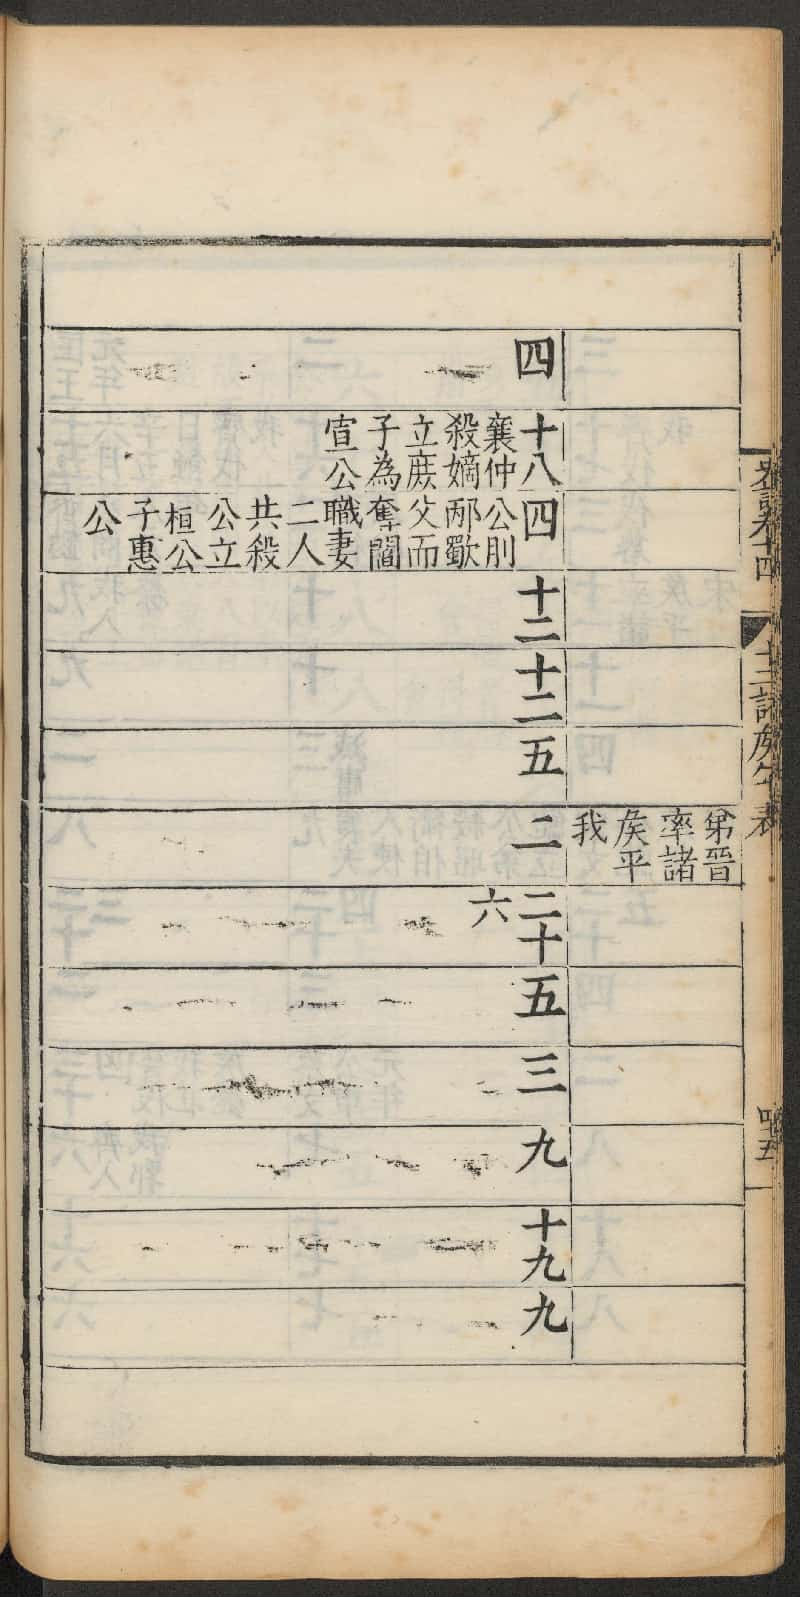 第晉
率諸
侯平
我
四
十八
襄仲
殺嫡
立庶
子為
宣公
四
公刖
邴歜
父而
奪閻
職妻
二人
共殺
公立
桓公
子惠
公
十二
十二
五
二
二十
六
五
三
九
十九
九
十二諸侯年表